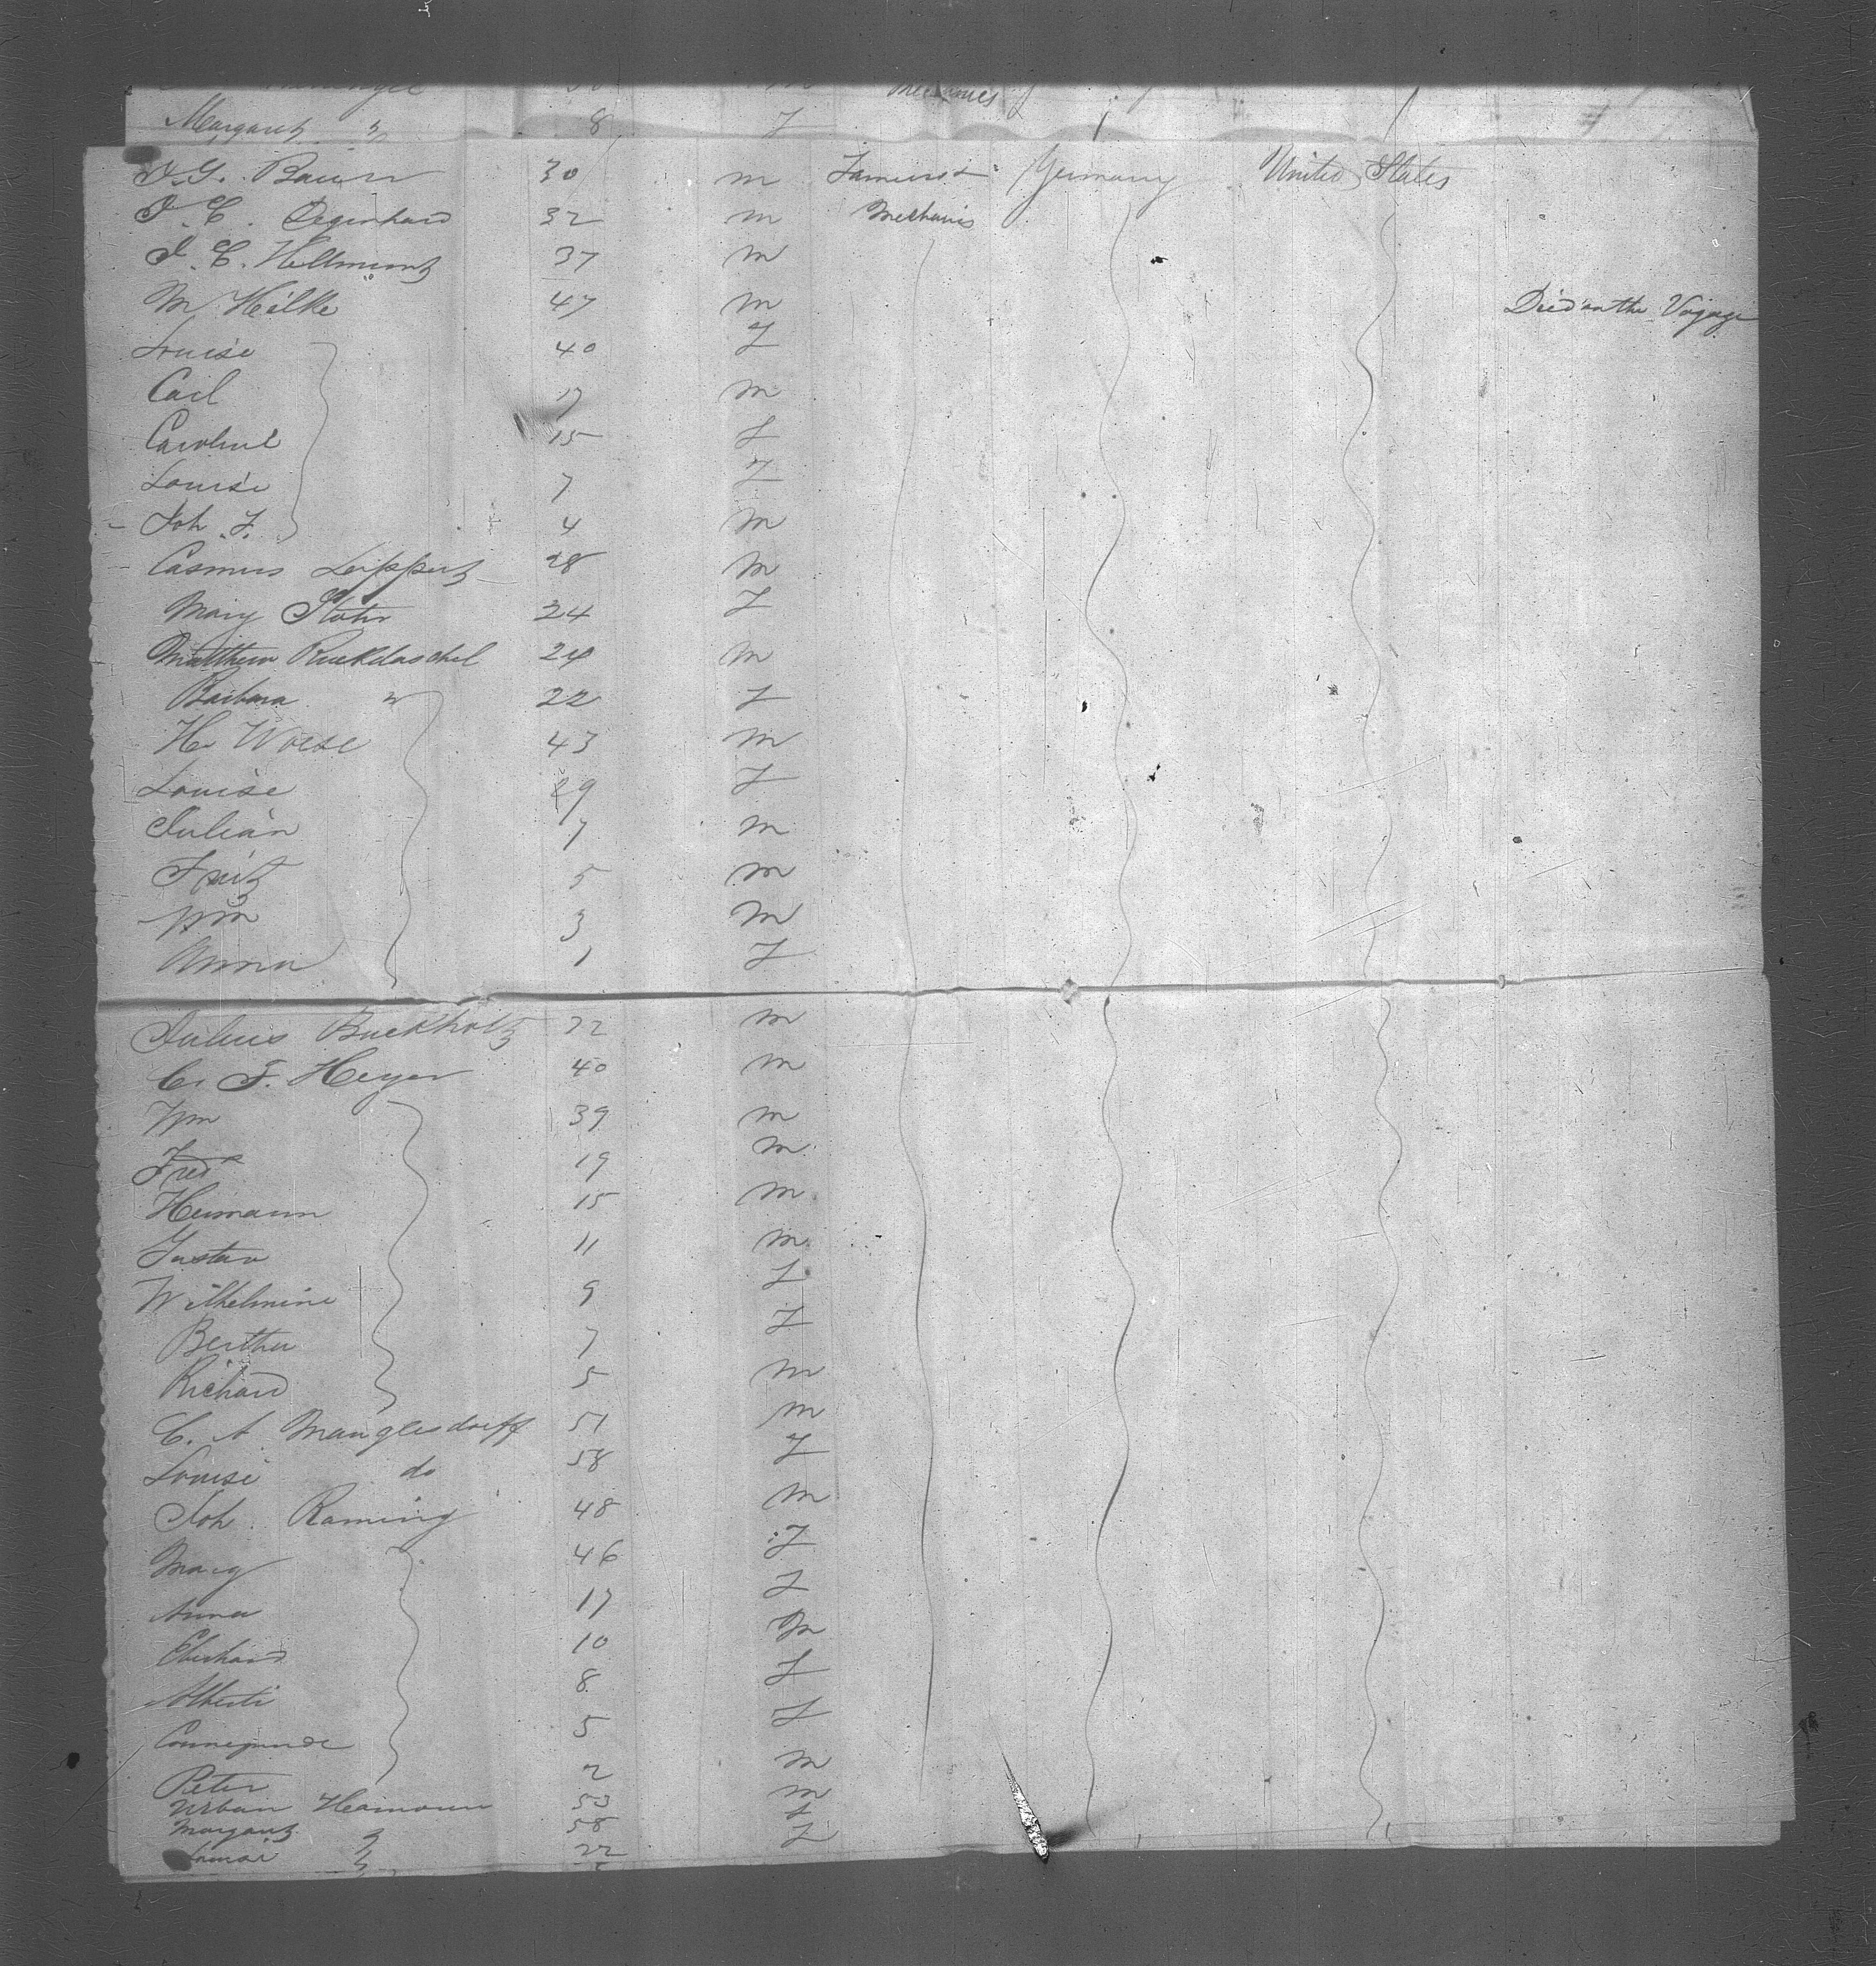 Margareth " 8 F
30 m Germany United States
J. C. Degenhard 32 m Mechanic
J. C. Hellmuth 37 m
M Heilke 47 m Died on the Voyage
Louise 40 F
Carl 17 m
Caroline 15 F
Louise 7 F
Joh F. 4 m
Casmus Leippert 28 m
Mary Stohr 24 F
Matthew Ruckdaschel 24 m
Barbara " 22 F
H. Woese 43 m
Louise 29 F
Julian 7 m
Fritz 5 m
Wm 3 m
Anna 1 F
Julius Buckholtz 22 m
C. F. Heyer 40 m
Wm 39 m
Fred 19 m
Hermann 15 m
Gustav 11 m
Wilhelmine 9 F
Bertha 7 F
Richard 5 m
C. A. Manglesdorff 51 m
Louise do 58 F
Joh. Raming 48 m
Mary 46 F
Anna 17 F
Eberhard 10 m
8 F
Connegunde 5 F
Peter 2 m
Urban Hermann 53 m
Margareth " 58 F
22 F